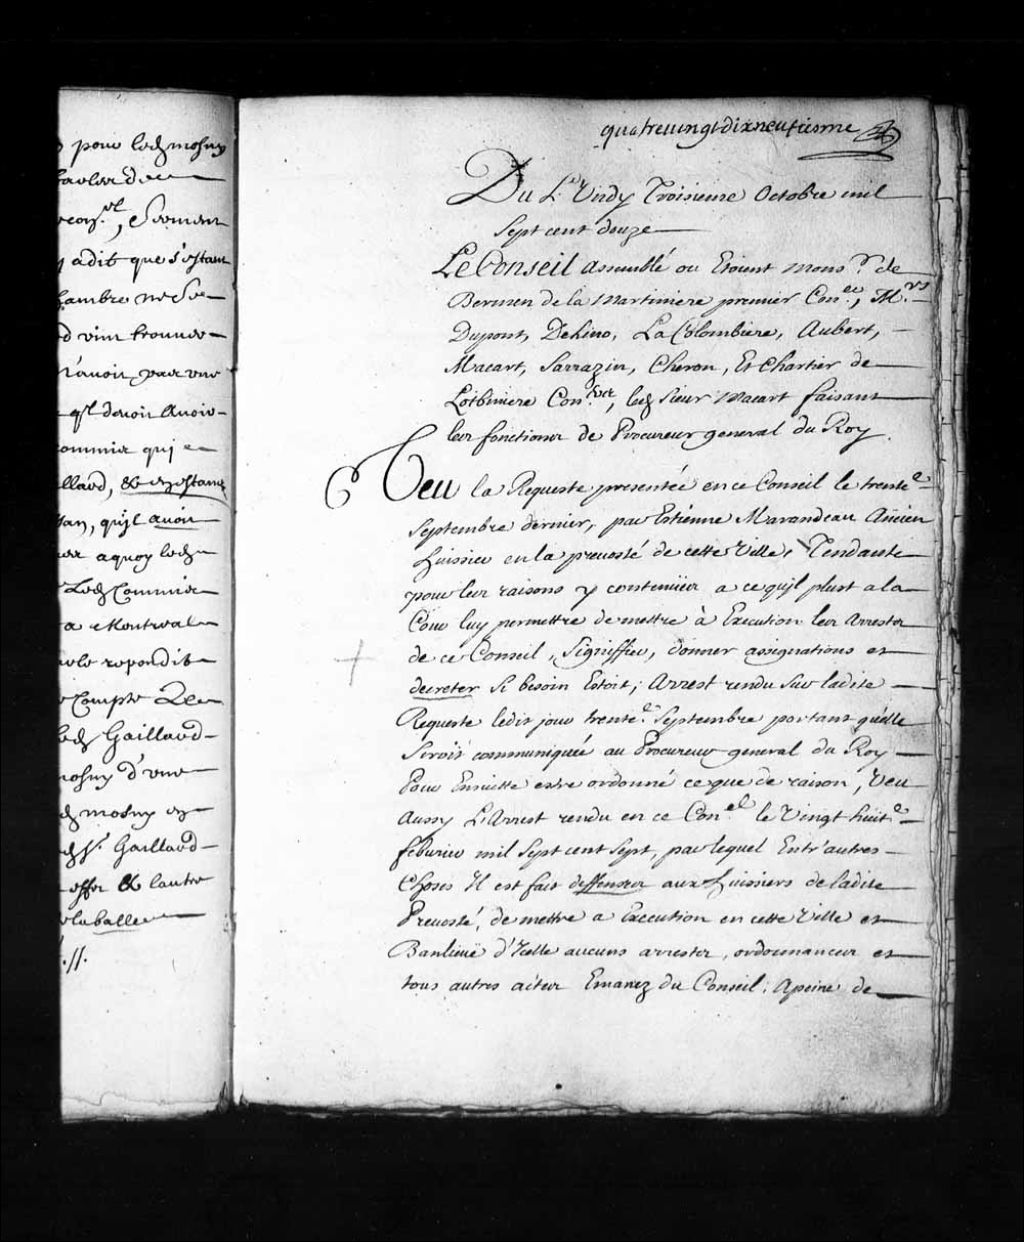 pour led. mosny
parler de
con.el, Serment
a dit que s'estant
chambre ne se
vint trouver
n'avoir par une
ql devoit Avoir
commis qui
llard, &
tan, qu'jl avoit
aquoy led.
Led. Commis
a Montreal
repondit
Compte De
led. Gaillard
mosny d'une
mosny et
led. Sr. Gaillard
offre & lautre
la balle
.//.
quatreuingt dixneufiesme
Du L'Undy Troisieme Octobre mil
Sept cent douze
Le Conseil assemblé ou Etoient Mons.r de
Bermen de la Martiniere premier Con.er, M.rs
Dupont, Delino, La Colombiere, Aubert,
Macart, Sarrazin, Cheron, Et Chartier de
Lotbiniere Con.ers, led. Sieur Macart faisant
les fonctions de Procureur general du Roy.
Veu la Requeste presentée en ce Conseil le trente.e
Septembre dernier, par Estienne Marandeau Ancien
huissier en la preuosté de cette Ville, Tendante
pour les raisons y contenües a ce qu'jl plust a la
Cour luy permettre de mettre à Execution les Arrests
de ce Conseil, Signiffier, donner assignations et
decreter si besoin Estoit; Arrest rendu sur ladite
Requeste ledit jour trente.e Septembre portant qu'elle
Seroit communiquée au Procureur general du Roy
Pour Ensuitte estre ordonné ce que de raison, Veu
Aussy L'Arrest rendu en ce Con.el le Vingt huit.e
feburier mil Sept cent Sept, par lequel Entr'autres
Choses Il est fait deffenses aux huissiers de ladite
Preuosté, de mettre a Execution en cette Ville et
Banlieüe d'Icelle aucuns arrests, ordonnances et
tous autres actes Emanez du Conseil; Apeine de